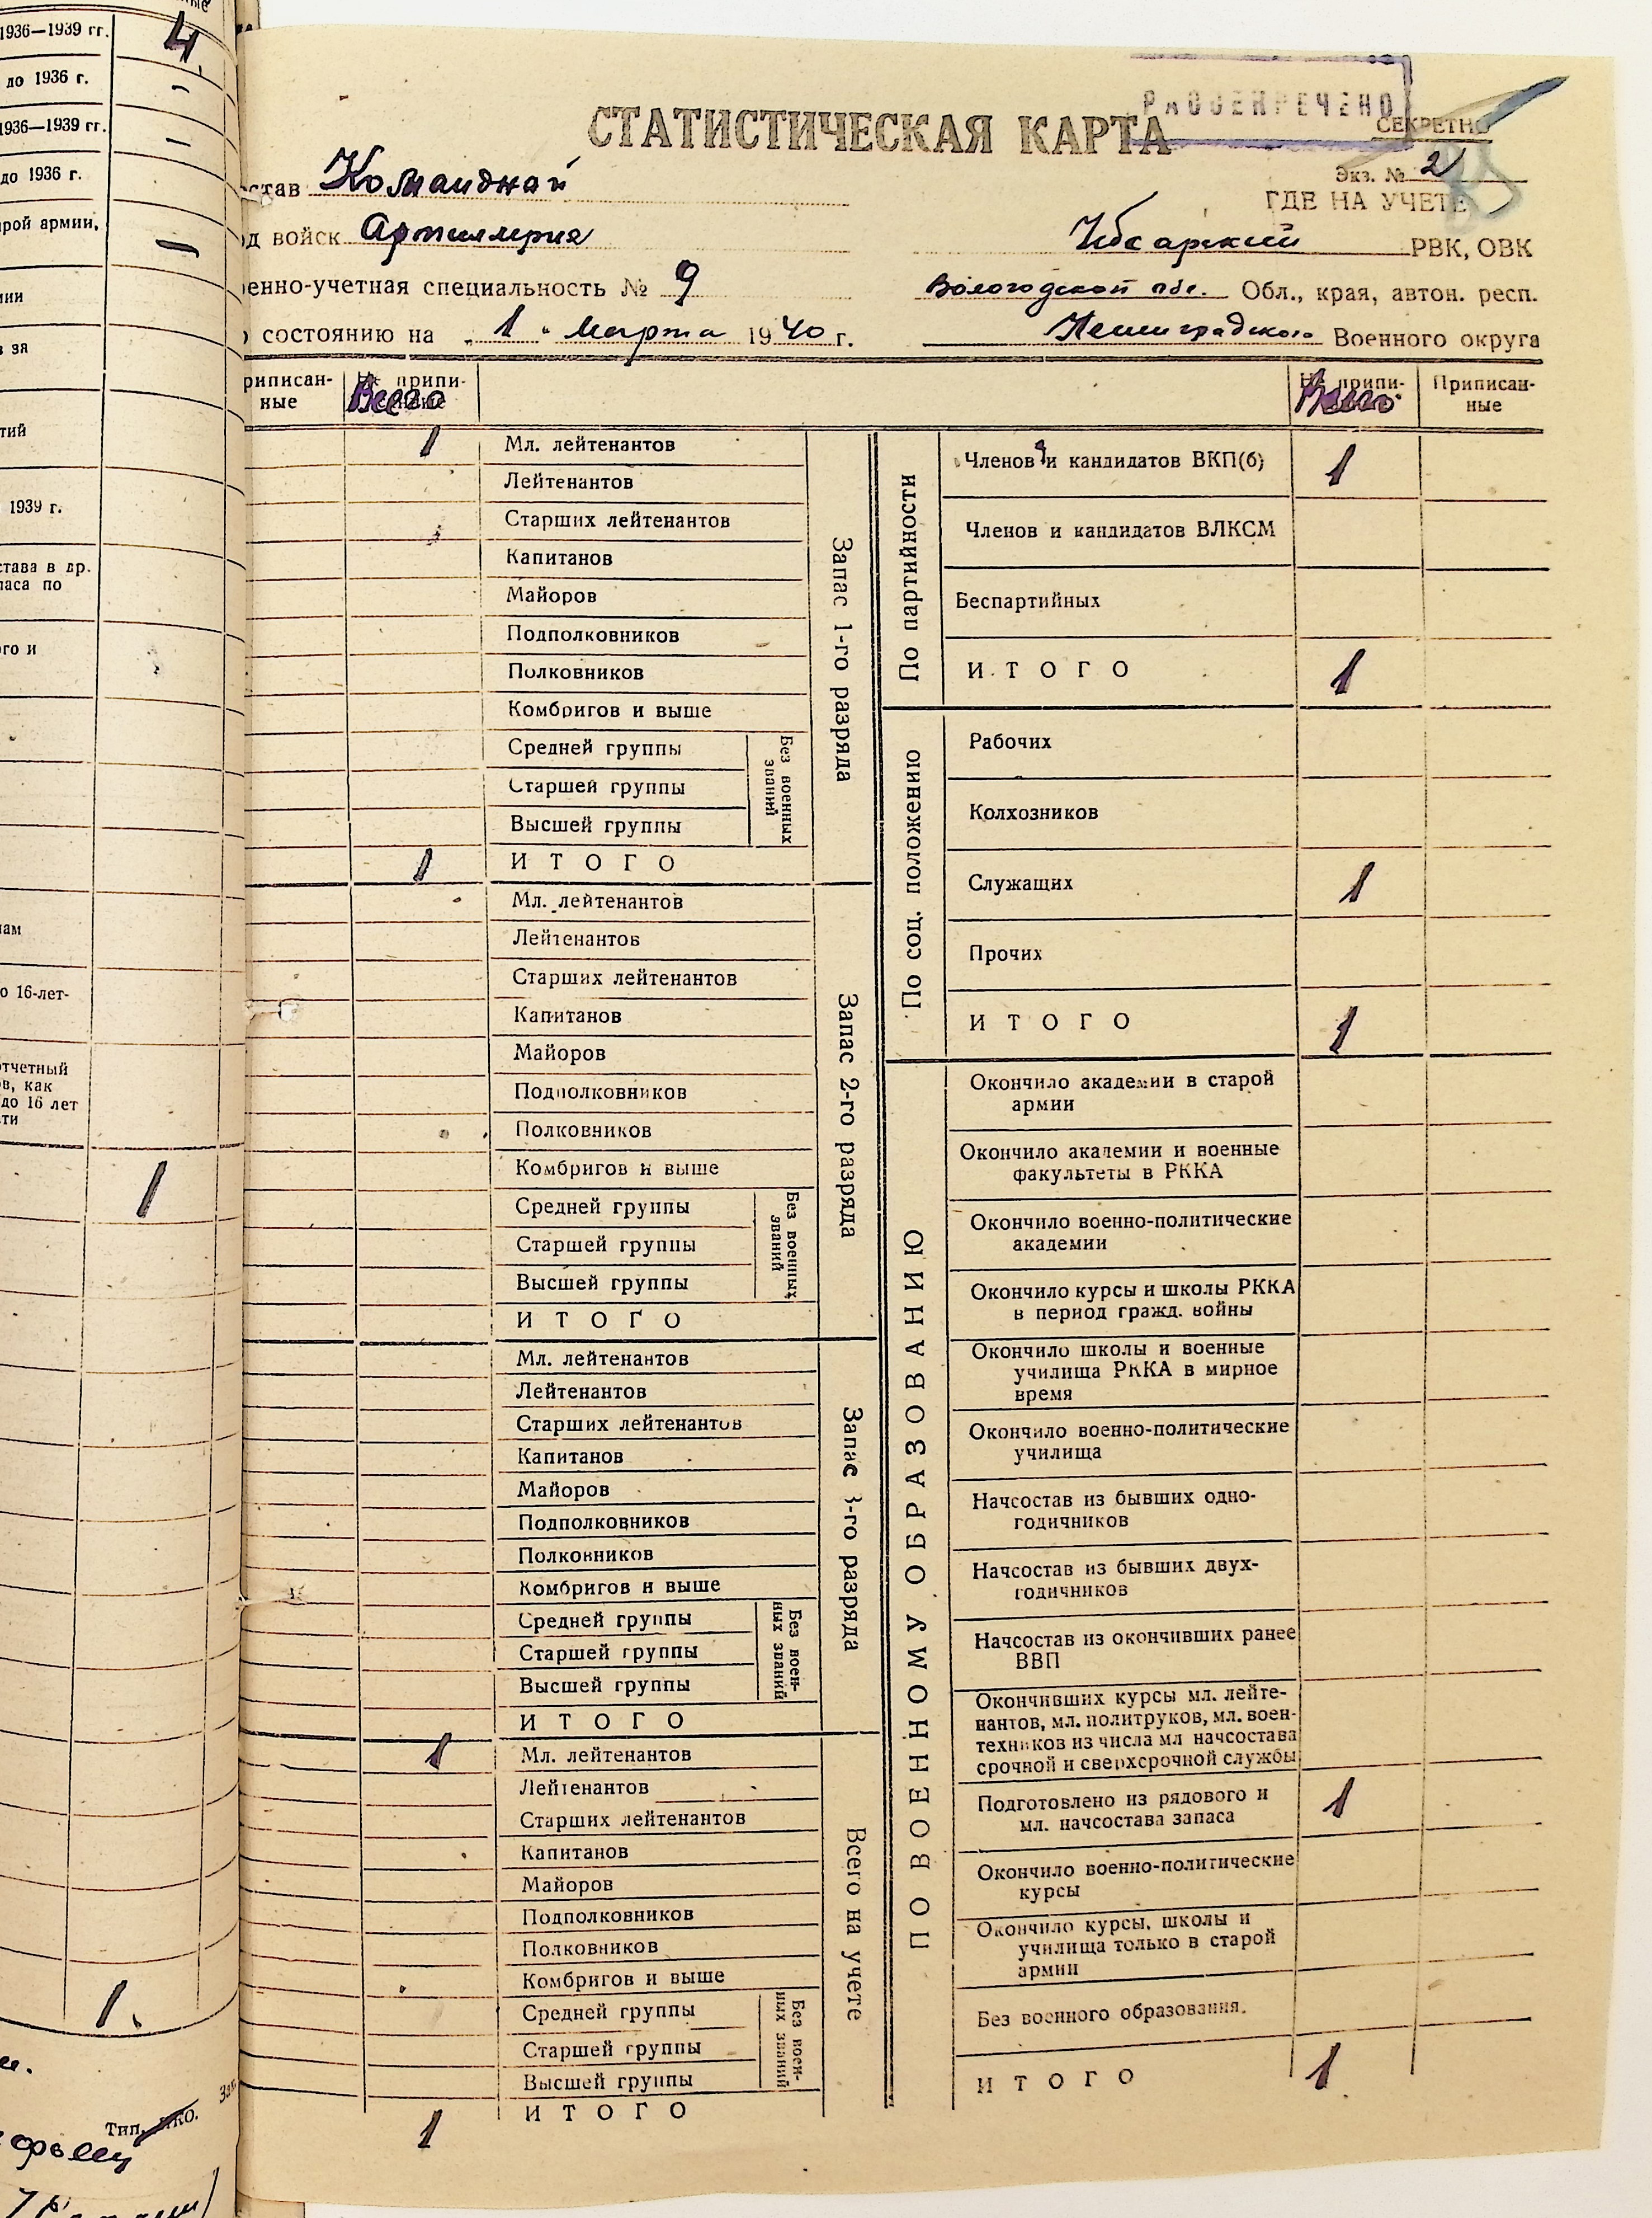 1936—1939 гг. 4
до 1936 г. -
1936—1939 гг. -
до 1936 г.
рой армии, 1
1939 г.
става в др.
паса по
го и
о 16-лет-
отчетный
в, как
до 16 лет
ти
1
1.
Тип. НКО. Зак.
РАССЕКРЕЧЕНО
СТАТИСТИЧЕСКАЯ КАРТА
СЕКРЕТНО
Экз. № 2
став Командный
ГДЕ НА УЧЕТЕ
од войск Артиллерия
Чебсарский РВК, ОВК
енно-учетная специальность № 9
Вологодской обл. Обл., края, автон. респ.
состоянию на „1" Марта 1940 г.
Ленинградского Военного округа
риписан-
ные
Всего
Всего
Приписан-
ные
1 Мл. лейтенантов
Лейтенантов
Старших лейтенантов
Капитанов
Майоров
Подполковников
Полковников
Комбригов и выше
Средней группы
Старшей группы
Высшей группы
Без военных
званий
1 ИТОГО
Запас 1-го разряда
Мл. лейтенантов
Лейтенантов
Старших лейтенантов
Капитанов
Майоров
Подполковников
Полковников
Комбригов и выше
Средней группы
Старшей группы
Высшей группы
Без военных
званий
ИТОГО
Запас 2-го разряда
Мл. лейтенантов
Лейтенантов
Старших лейтенантов
Капитанов
Майоров
Подполковников
Полковников
Комбригов и выше
Средней группы
Старшей группы
Высшей группы
Без воен-
ных званий
ИТОГО
Запас 3-го разряда
1 Мл. лейтенантов
Лейтенантов
Старших лейтенантов
Капитанов
Майоров
Подполковников
Полковников
Комбригов и выше
Средней группы
Старшей группы
Высшей группы
Без воен-
ных званий
1 ИТОГО
Всего на учете
По партийности
Членов и кандидатов ВКП(б) 1
Членов и кандидатов ВЛКСМ
Беспартийных
ИТОГО 1
По соц. положению
Рабочих
Колхозников
Служащих 1
Прочих
ИТОГО 1
ПО ВОЕННОМУ ОБРАЗОВАНИЮ
Окончило академии в старой
армии
Окончило академии и военные
факультеты в РККА
Окончило военно-политические
академии
Окончило курсы и школы РККА
в период гражд. войны
Окончило школы и военные
училища РККА в мирное
время
Окончило военно-политические
училища
Начсостав из бывших одно-
годичников
Начсостав из бывших двух-
годичников
Начсостав из окончивших ранее
ВВП
Окончивших курсы мл. лейте-
нантов, мл. политруков, мл. воен-
техников из числа мл начсостава
срочной и сверхсрочной службы
Подготовлено из рядового и 1
мл. начсостава запаса
Окончило военно-политические
курсы
Окончило курсы, школы и
училища только в старой
армии
Без военного образования.
ИТОГО 1